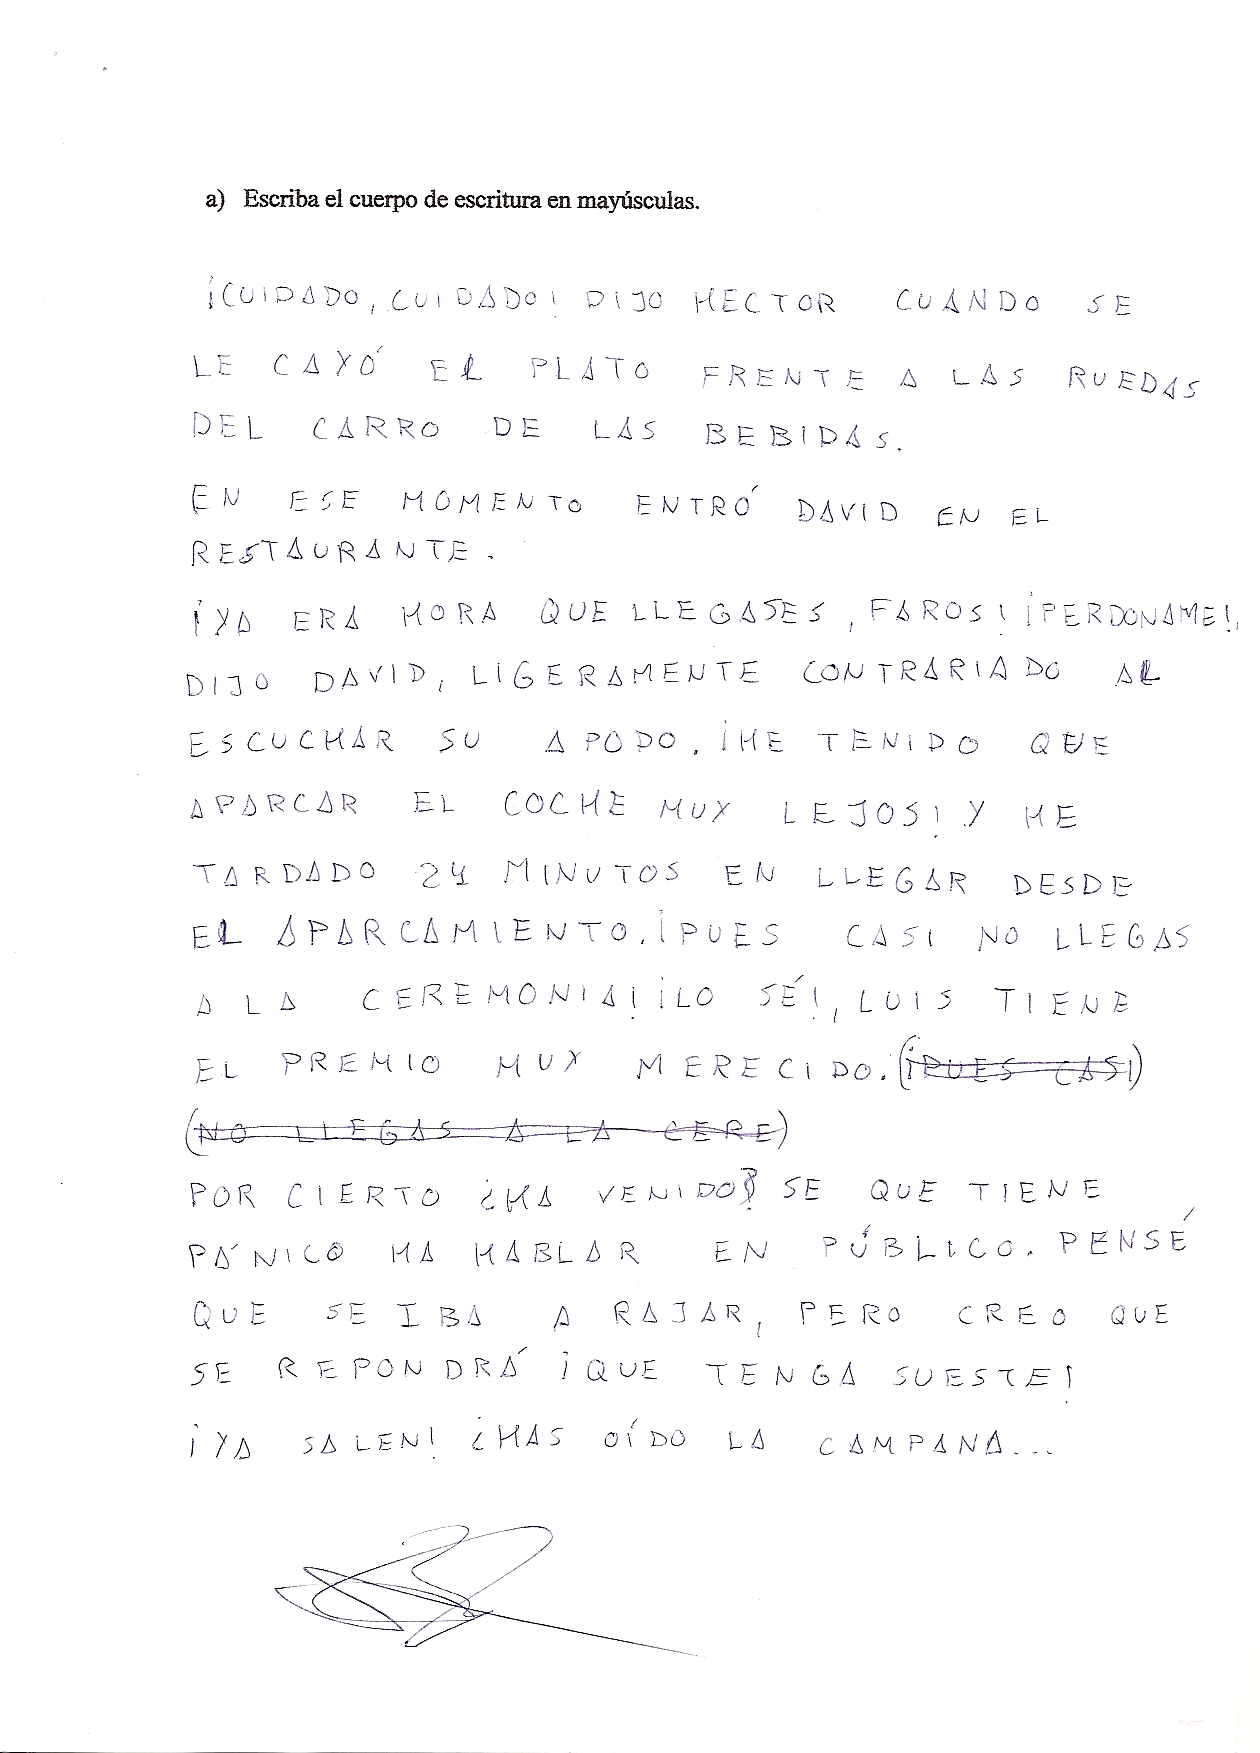 a) Escriba el cuerpo de escritura en mayúsculas.
¡CUIDADO, CUIDADO! DIJO HECTOR CUANDO SE
LE CAYÓ EL PLATO FRENTE A LAS RUEDAS
DEL CARRO DE LAS BEBIDAS.
EN ESE MOMENTO ENTRÓ DAVID EN EL
RESTAURANTE.
¡YA ERA HORA QUE LLEGASES, FAROS! ¡PERDONAME!,
DIJO DAVID, LIGERAMENTE CONTRARIADO AL
ESCUCHAR SU APODO. ¡HE TENIDO QUE
APARCAR EL COCHE MUY LEJOS! Y HE
TARDADO 24 MINUTOS EN LLEGAR DESDE
EL APARCAMIENTO. ¡PUES CASI NO LLEGAS
A LA CEREMONIA! ¡LO SÉ!, LUIS TIENE
EL PREMIO MUY MERECIDO. (¡PUES CASI)
(NO LLEGAS A LA CERE)
POR CIERTO ¿HA VENIDO? SE QUE TIENE
PÁNICO HA HABLAR EN PÚBLICO. PENSÉ
QUE SE IBA A RAJAR, PERO CREO QUE
SE REPONDRÁ ¡QUE TENGA SUESTE!
¡YA SALEN! ¿HAS OÍDO LA CAMPANA...